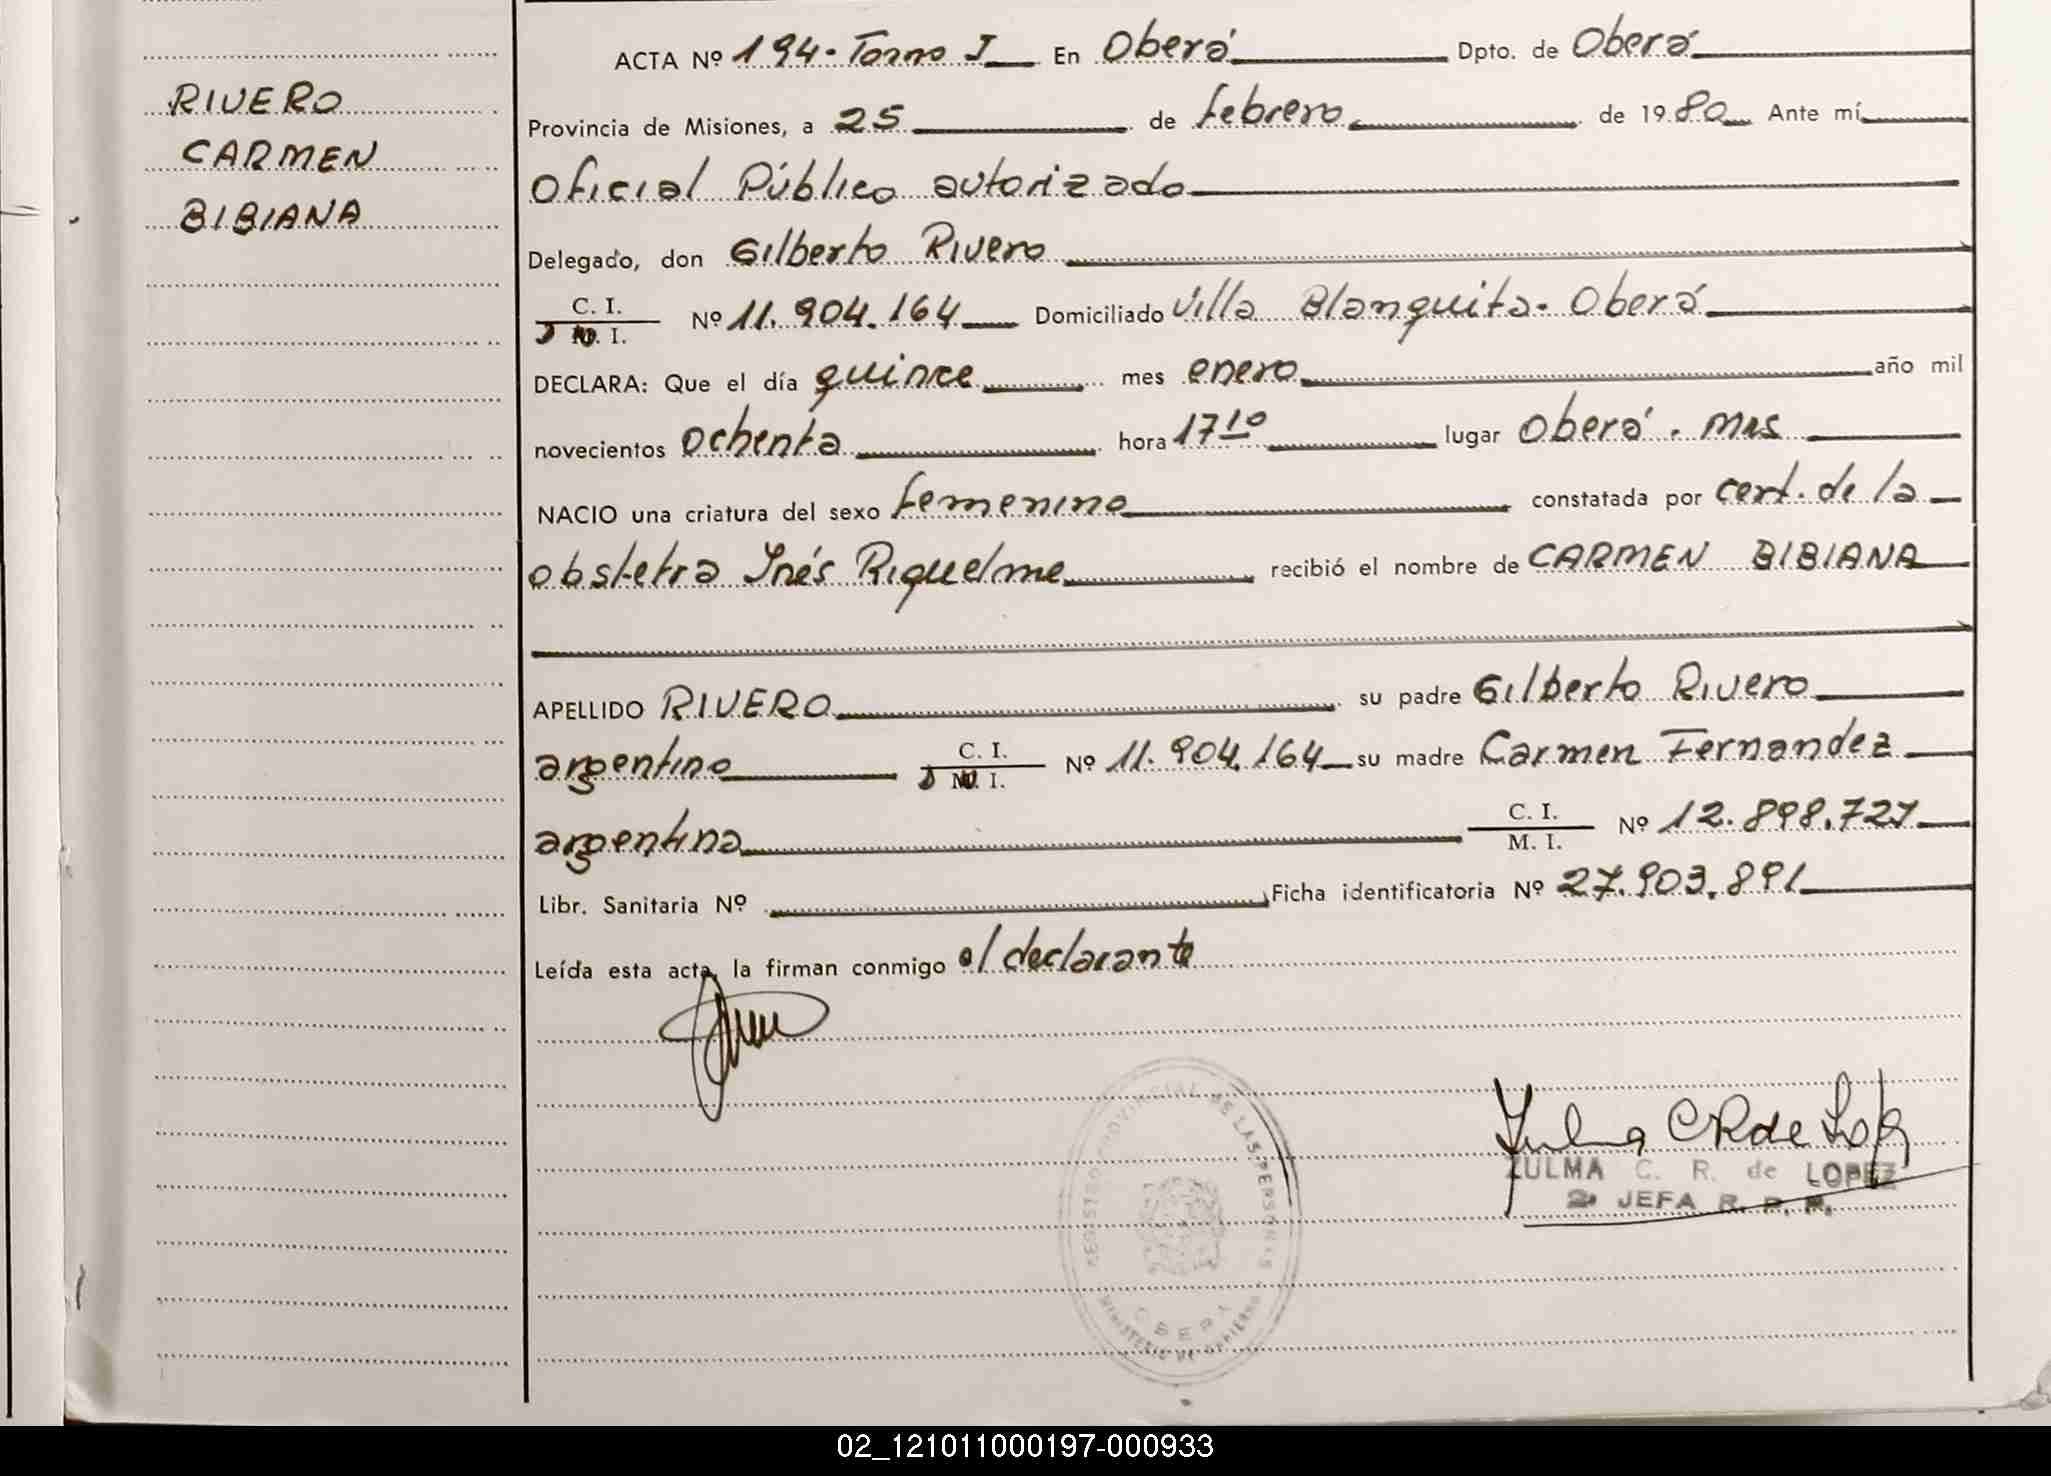 RIVERO
CARMEN
BIBIANA
ACTA Nº 194- Tomo I En Oberá Dpto. de Oberá
Provincia de Misiones, a 25 de febrero de 1980 Ante mí
Oficial Público autorizado
Delegado, don Gilberto Rivero
C. I.
D N. I. Nº 11.904.164 Domiciliado Villa Blanquita- Oberá
DECLARA: Que el día quince mes enero año mil
novecientos ochenta hora 17 10 lugar Oberá. Mns
NACIO una criatura del sexo femenino constatada por cert. de la
obstetra Inés Riquelme recibió el nombre de CARMEN BIBIANA
APELLIDO RIVERO su padre Gilberto Rivero
argentino C. I. D N. I. Nº 11.904.164 su madre Carmen Fernandez
argentina C. I. M. I. Nº 12.898.727
Libr. Sanitaria Nº Ficha identificatoria Nº 27.903.891
Leída esta acta, la firman conmigo el declarante
Zulma C R de López
ZULMA C. R. de LOPEZ
JEFA R. P. P.
REGISTRO PROVINCIAL DE LAS PERSONAS
OBERA
MINISTERIO DE GOBIERNO
02_121011000197-000933